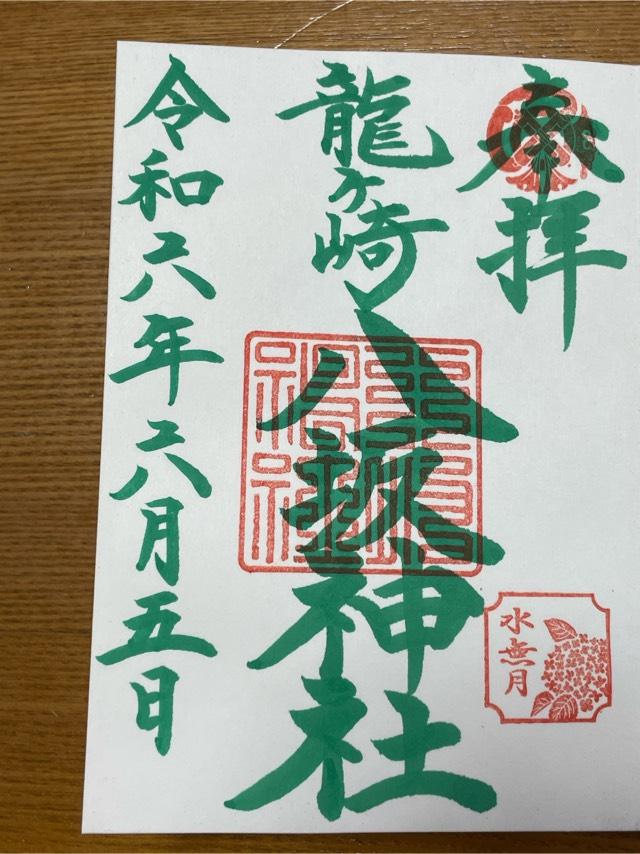 奉拝
龍ヶ崎
八坂神社
令和六年六月五日
水無月